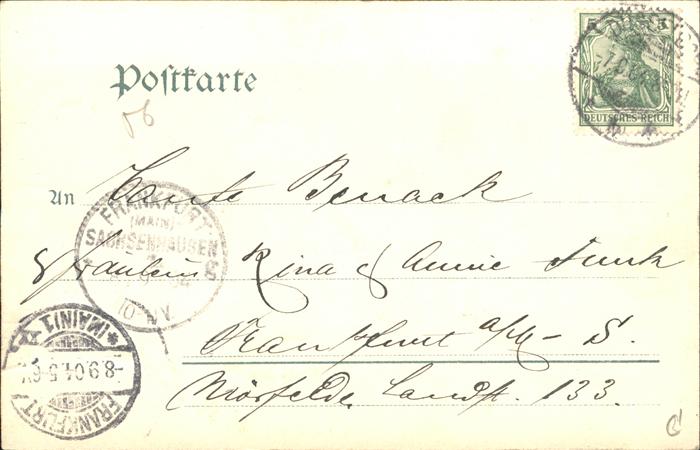 5 5
DEUTSCHES REICH
Postkarte
An Tante Benack
FRANKFURT
(MAIN)
SACHSENHAUSEN
10-11V.
& Fräulein Rina & Annie Funk
Frankfurt a/M - S.
Mörfelder Landst. 133.
*(MAIN)1
-8.9.04.5-6V.
FRANKFURT